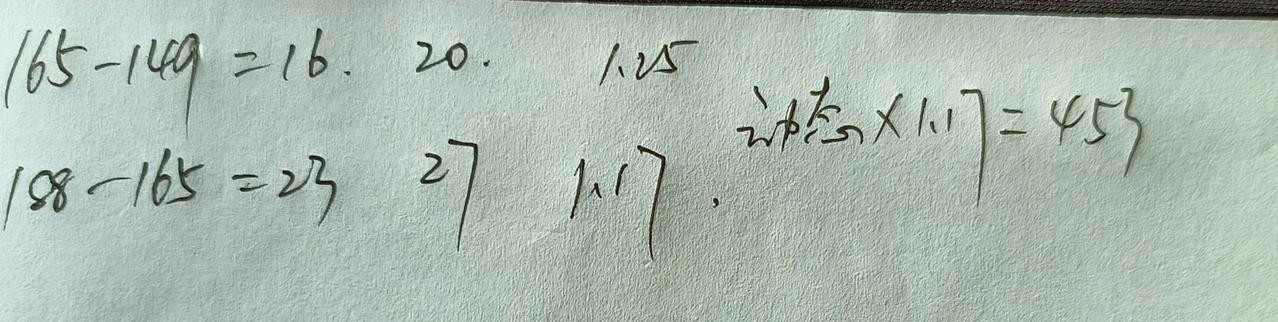 165-149=16. 20. 1.25
动态×1.17=453
188-165=23 27 1.17.